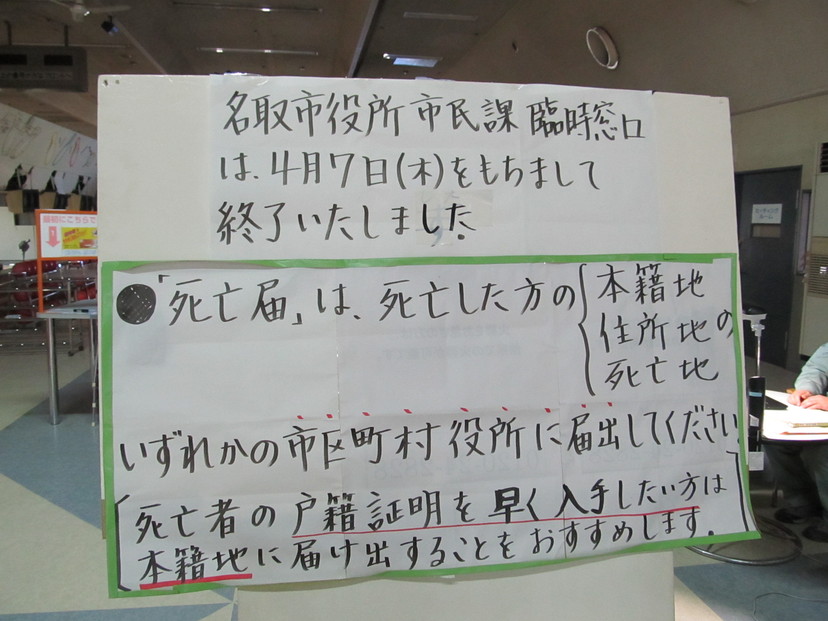 名取市役所市民課臨時窓口
は、4月7日(木)をもちまして
終了いたしました.
●「死亡届」は、死亡した方の
本籍地
住所地の
死亡地
いずれかの市区町村役所に届出してください
死亡者の戸籍証明を早く入手したい方は
本籍地に届け出することをおすすめします.
最初にこちらで
ミーティング
ルーム